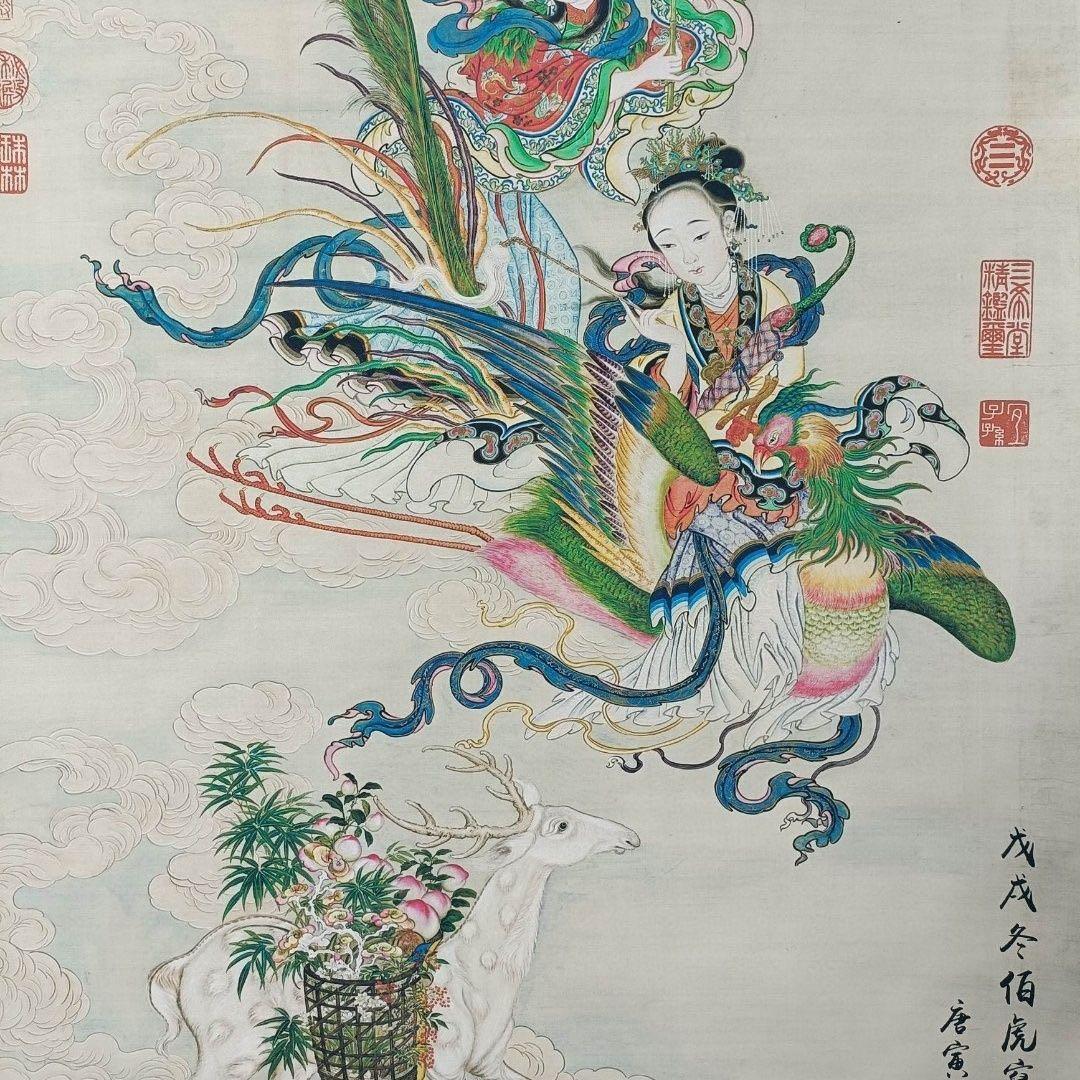 三希堂
精鑑璽
宜
子孫
戊戌冬伯虎
唐寅
秘殿
珠林